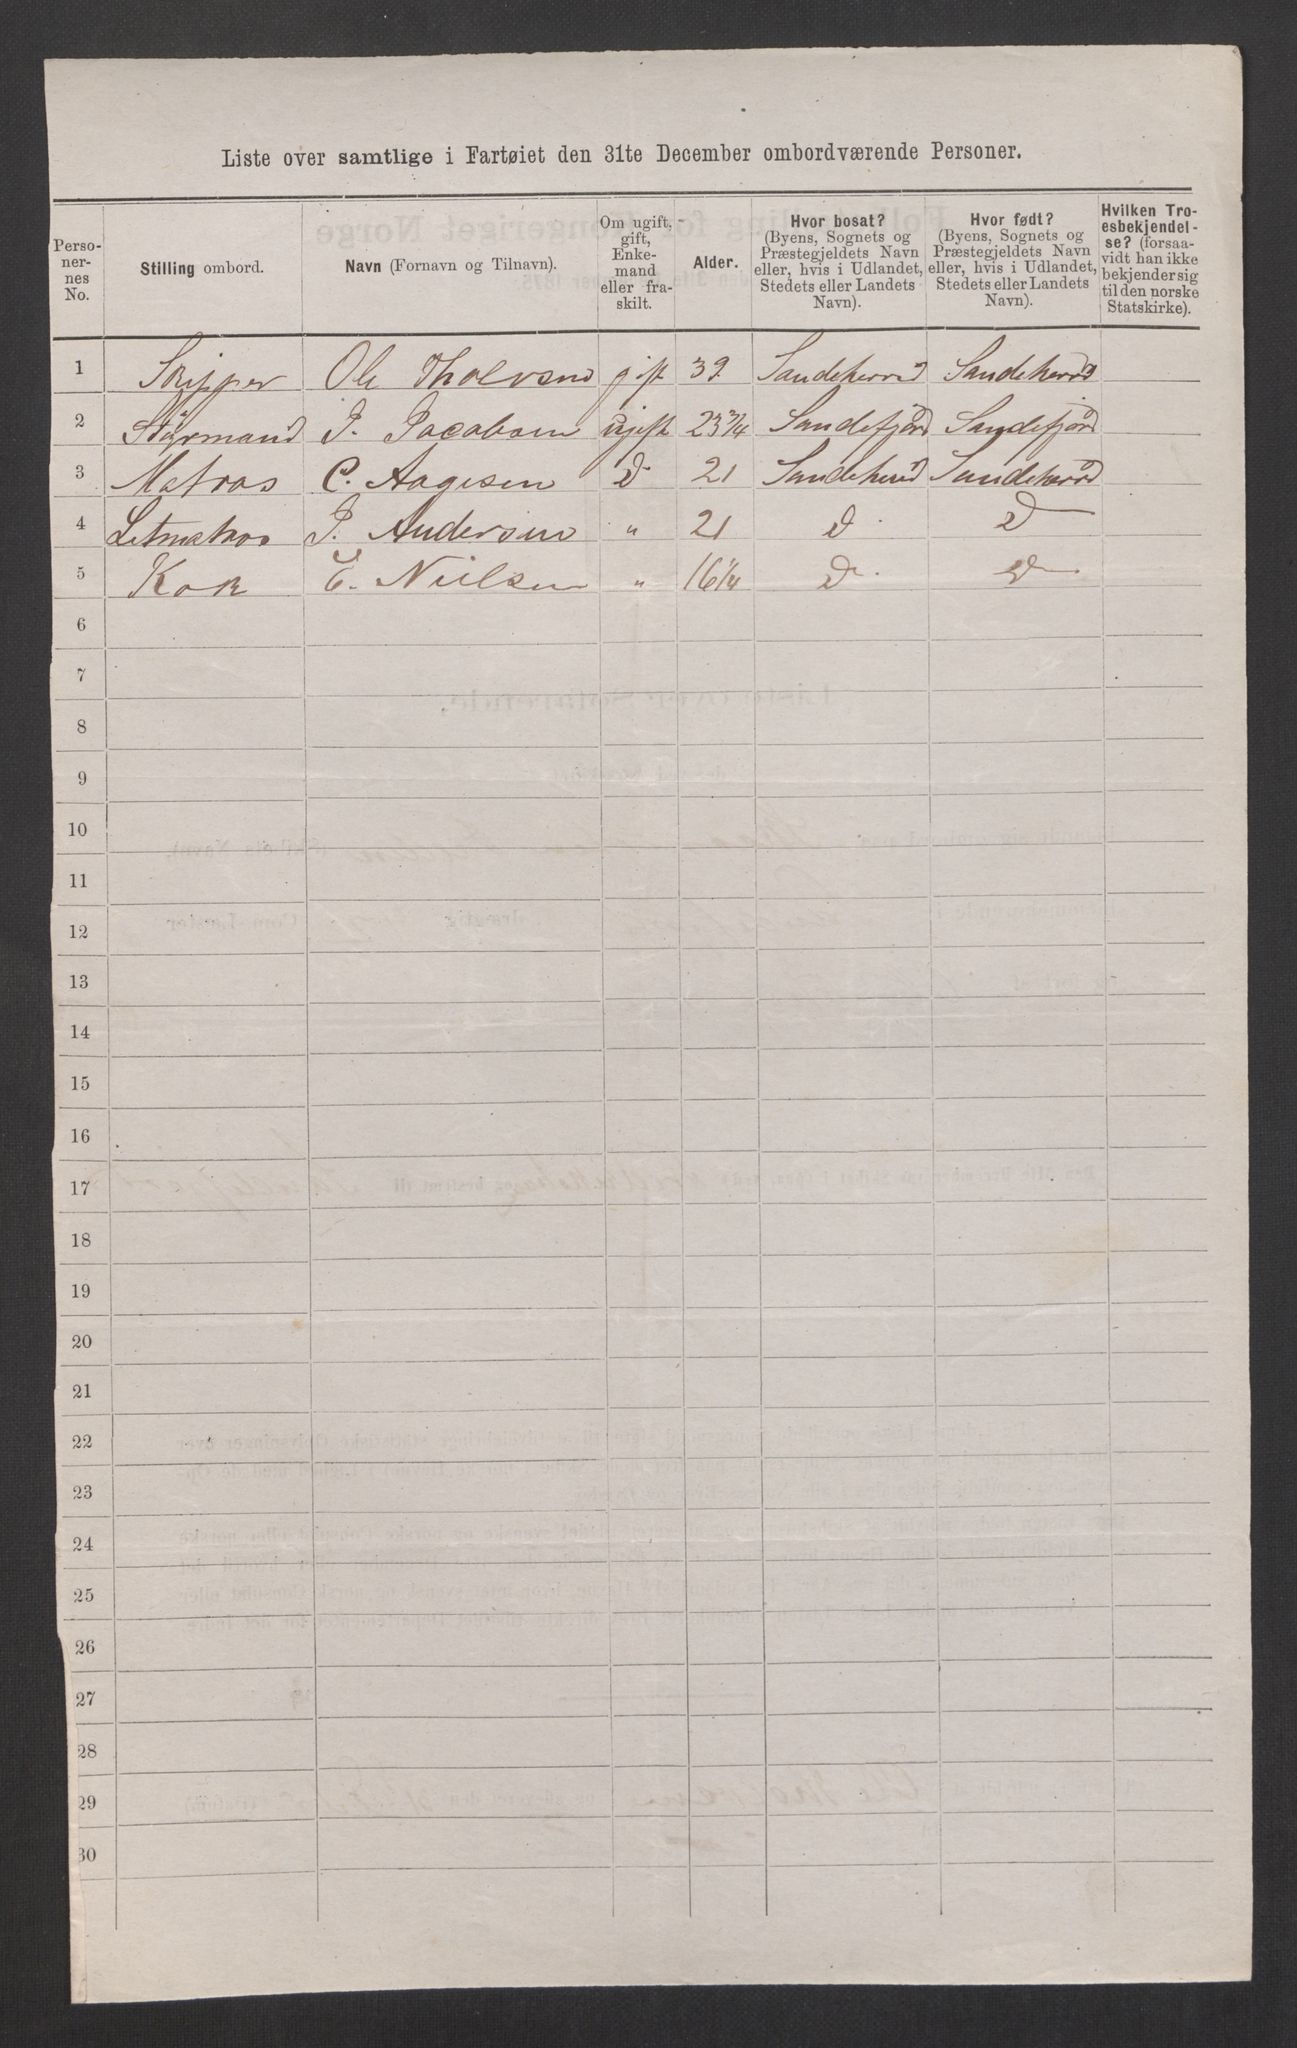 Liste over samtlige i Fartøiet den 31te December ombordværende Personer.
Perso-
ner-
nes
No.
Stilling ombord.
Navn (Fornavn og Tilnavn).
Om ugift,
gift,
Enke-
mand
eller fra-
skilt.
Alder.
Hvor bosat?
(Byens, Sognets og
Præstegjeldets Navn
eller, hvis i Udlandet,
Stedets eller Landets
Navn).
Hvor født?
(Byens, Sognets og
Præstegjeldets Navn
eller, hvis i Udlandet,
Stedets eller Landets
Navn).
Hvilken Tro-
esbekjendel-
se? (forsaa-
vidt han ikke
bekjender sig
til den norske
Statskirke).
1 Skipper Ole Tholvsen gift 39. Sandeherred Sandeherred
2 Styrmand J. Jacobsen ugift 23 3/4 Sandefjord Sandefjord
3 Matros C. Aagesen D 21 Sandeherred Sandeherred
4 Letmatros J. Andersen " 21 D D
5 Kok E. Nielsen " 16 1/4 D D
6
7
8
9
10
11
12
13
14
15
16
17
18
19
20
21
22
23
24
25
26
27
28
29
30